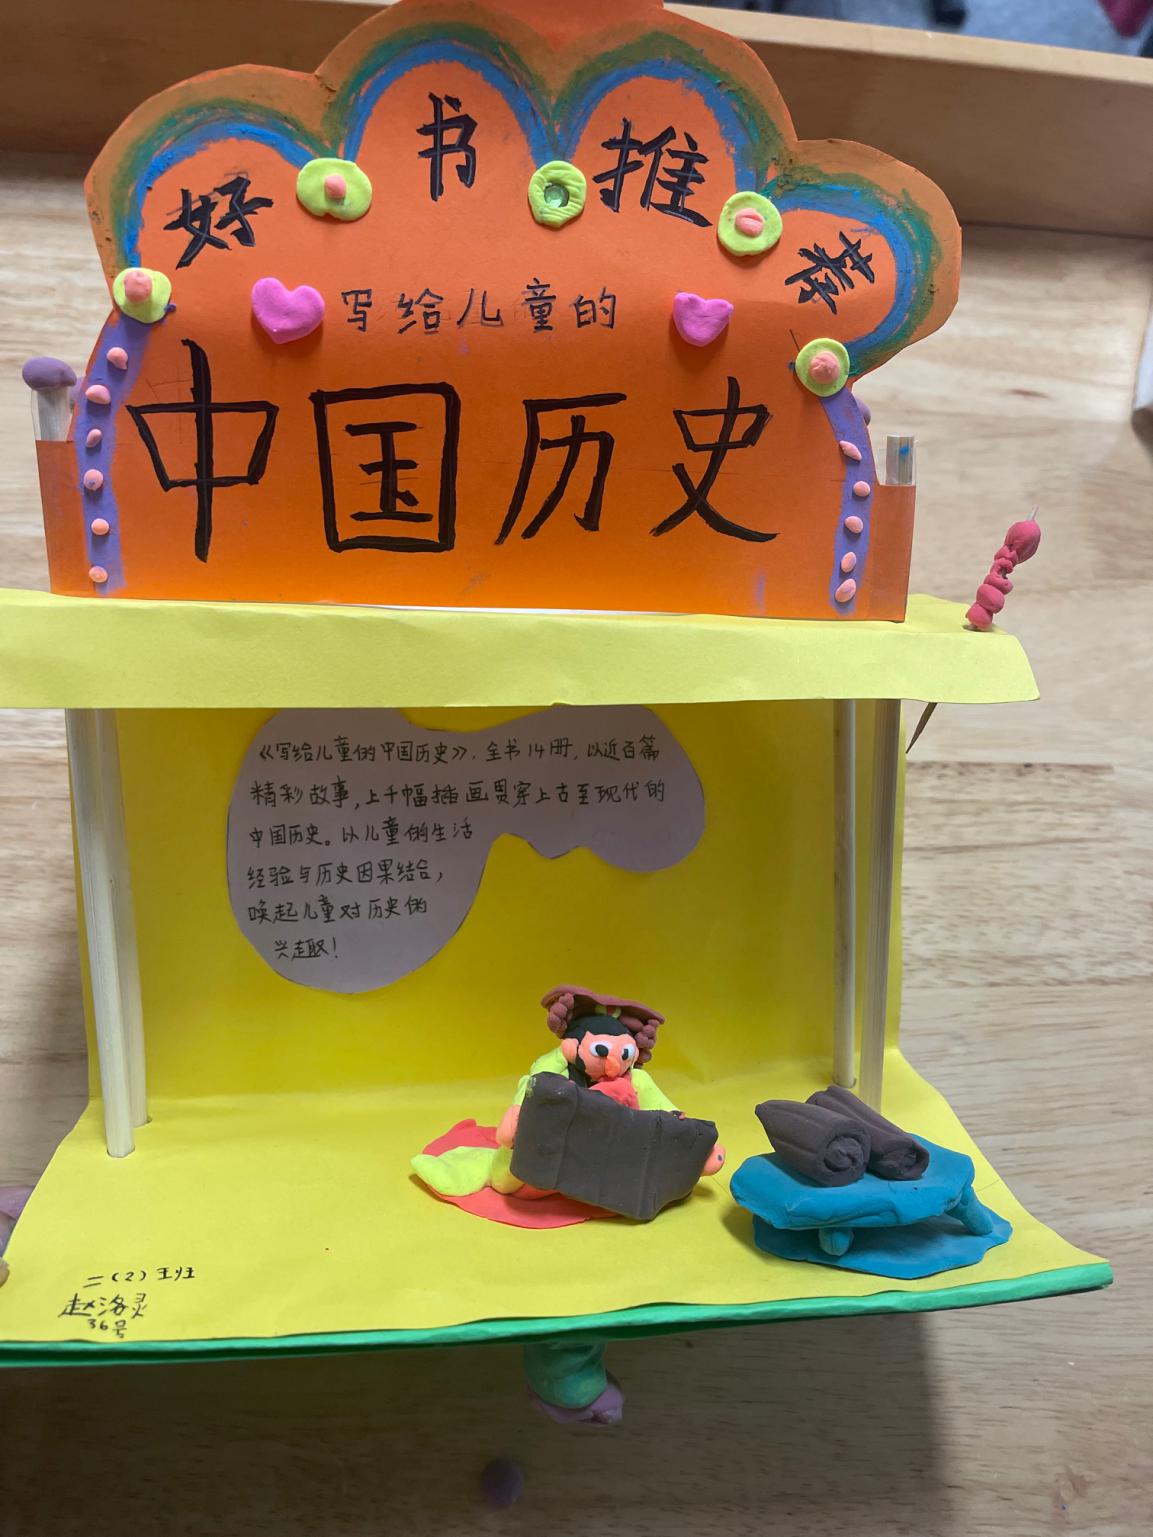 好书推荐
写给儿童的
中国历史
《写给儿童的中国历史》，全书14册，以近百篇
精彩故事，上千幅插画贯穿上古至现代的
中国历史。以儿童的生活
经验与历史因果结合，
唤起儿童对历史的
兴趣！
二（2）班
赵洛灵
36号